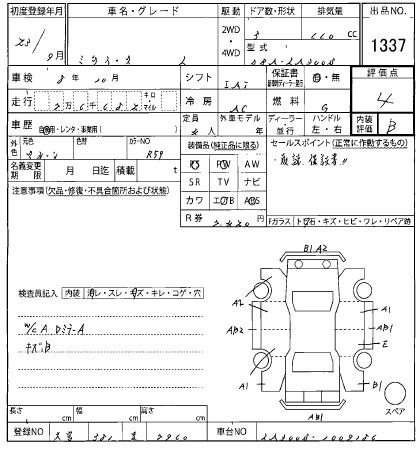 初度登録年月
車名・グレード
駆動
ドア数・形状
排気量
出品NO.
23/
9月
ミライース
L
2WD
・
4WD
5
660
CC
1337
型式
車検
8年10月
シフト
IAT
保証書
有・無
評価点
走行
キロ
マイル
冷房
AC
燃料
G
4
車歴
自家用・レンタ・事業用( )
定員
人
外車モデル
年
ディーラー
・
並行
ハンドル
左・右
内装
評価
B
外色
元色
色替
カラーNO
R59
装備品(純正品に限る)
セールスポイント(正常に動作するもの)
名義変更
期限
月
日迄
積載
t
PS
PW
AW
・取説、保証書!!
注意事項(欠品・修復・不具合箇所および状態)
SR
TV
ナビ
カワ
エアB
ABS
R券
Fガラス
トビ石・キズ・ヒビ・ワレ・リペア跡
B1 A2
検査員記入
内装
汚レ・スレ・キズ・キレ・コゲ・穴
A2
A1
W/C A
AB2
AB1
キズB
E
A1
B1
スペア
AB1
長さ
cm
幅
cm
高さ
cm
登録NO
車台NO